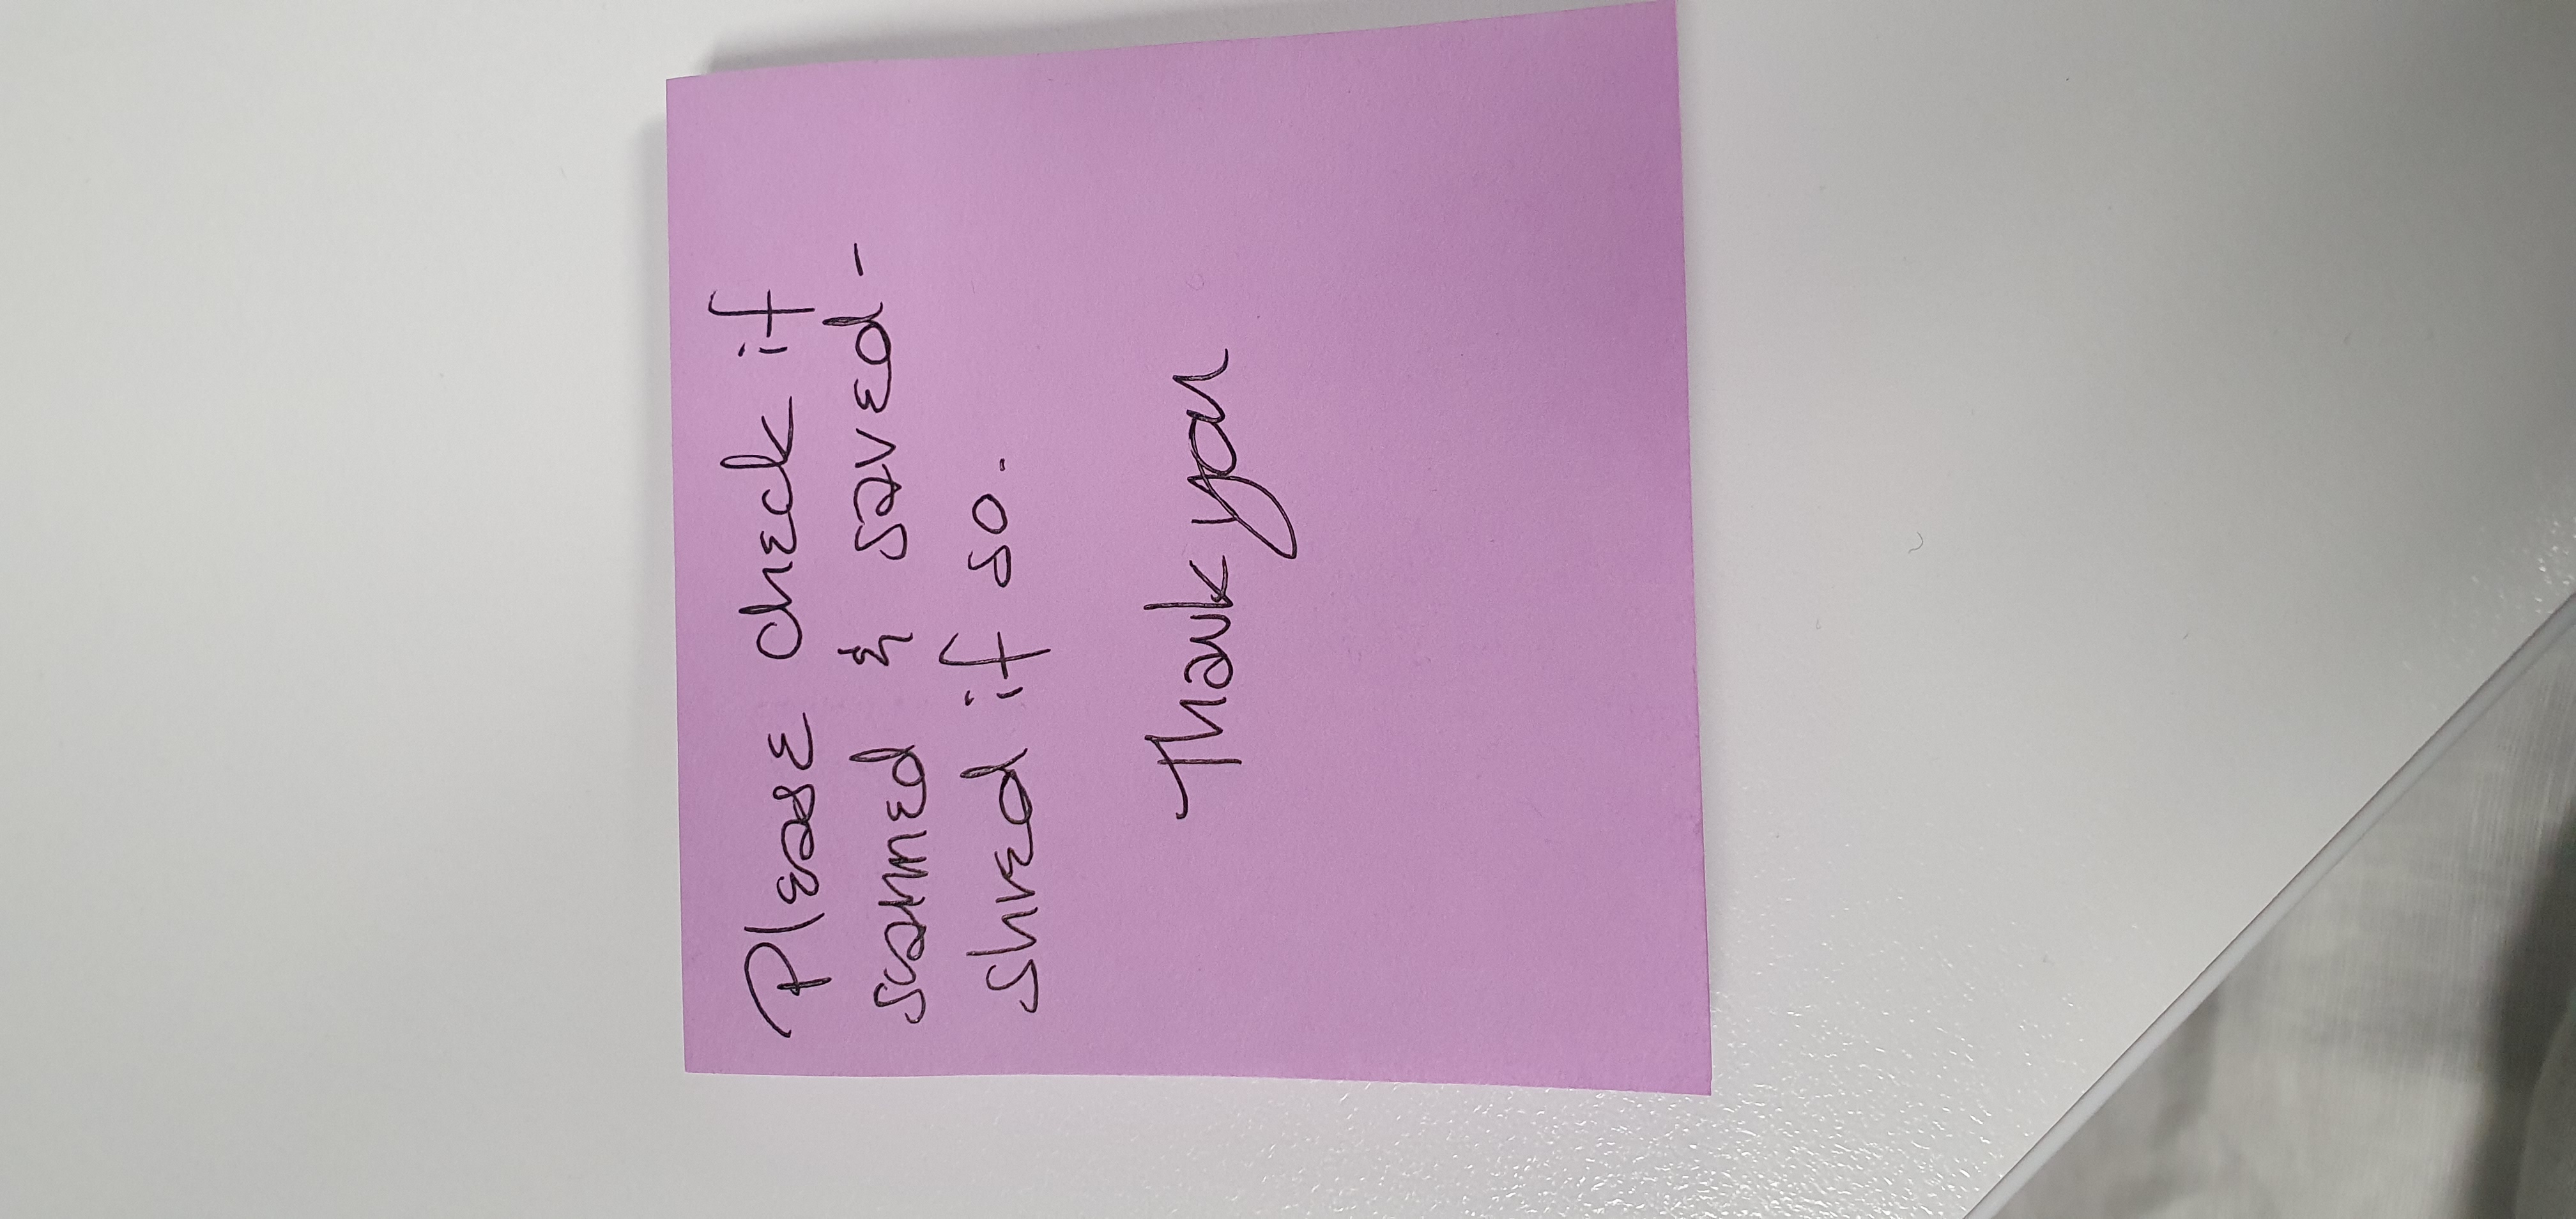 Please check if
scanned & saved -
shred if so.
Thank you